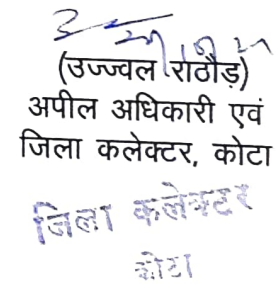 (उज्ज्वल राठौड़)
अपील अधिकारी एवं
जिला कलेक्टर, कोटा
जिला कलेक्टर
कोटा